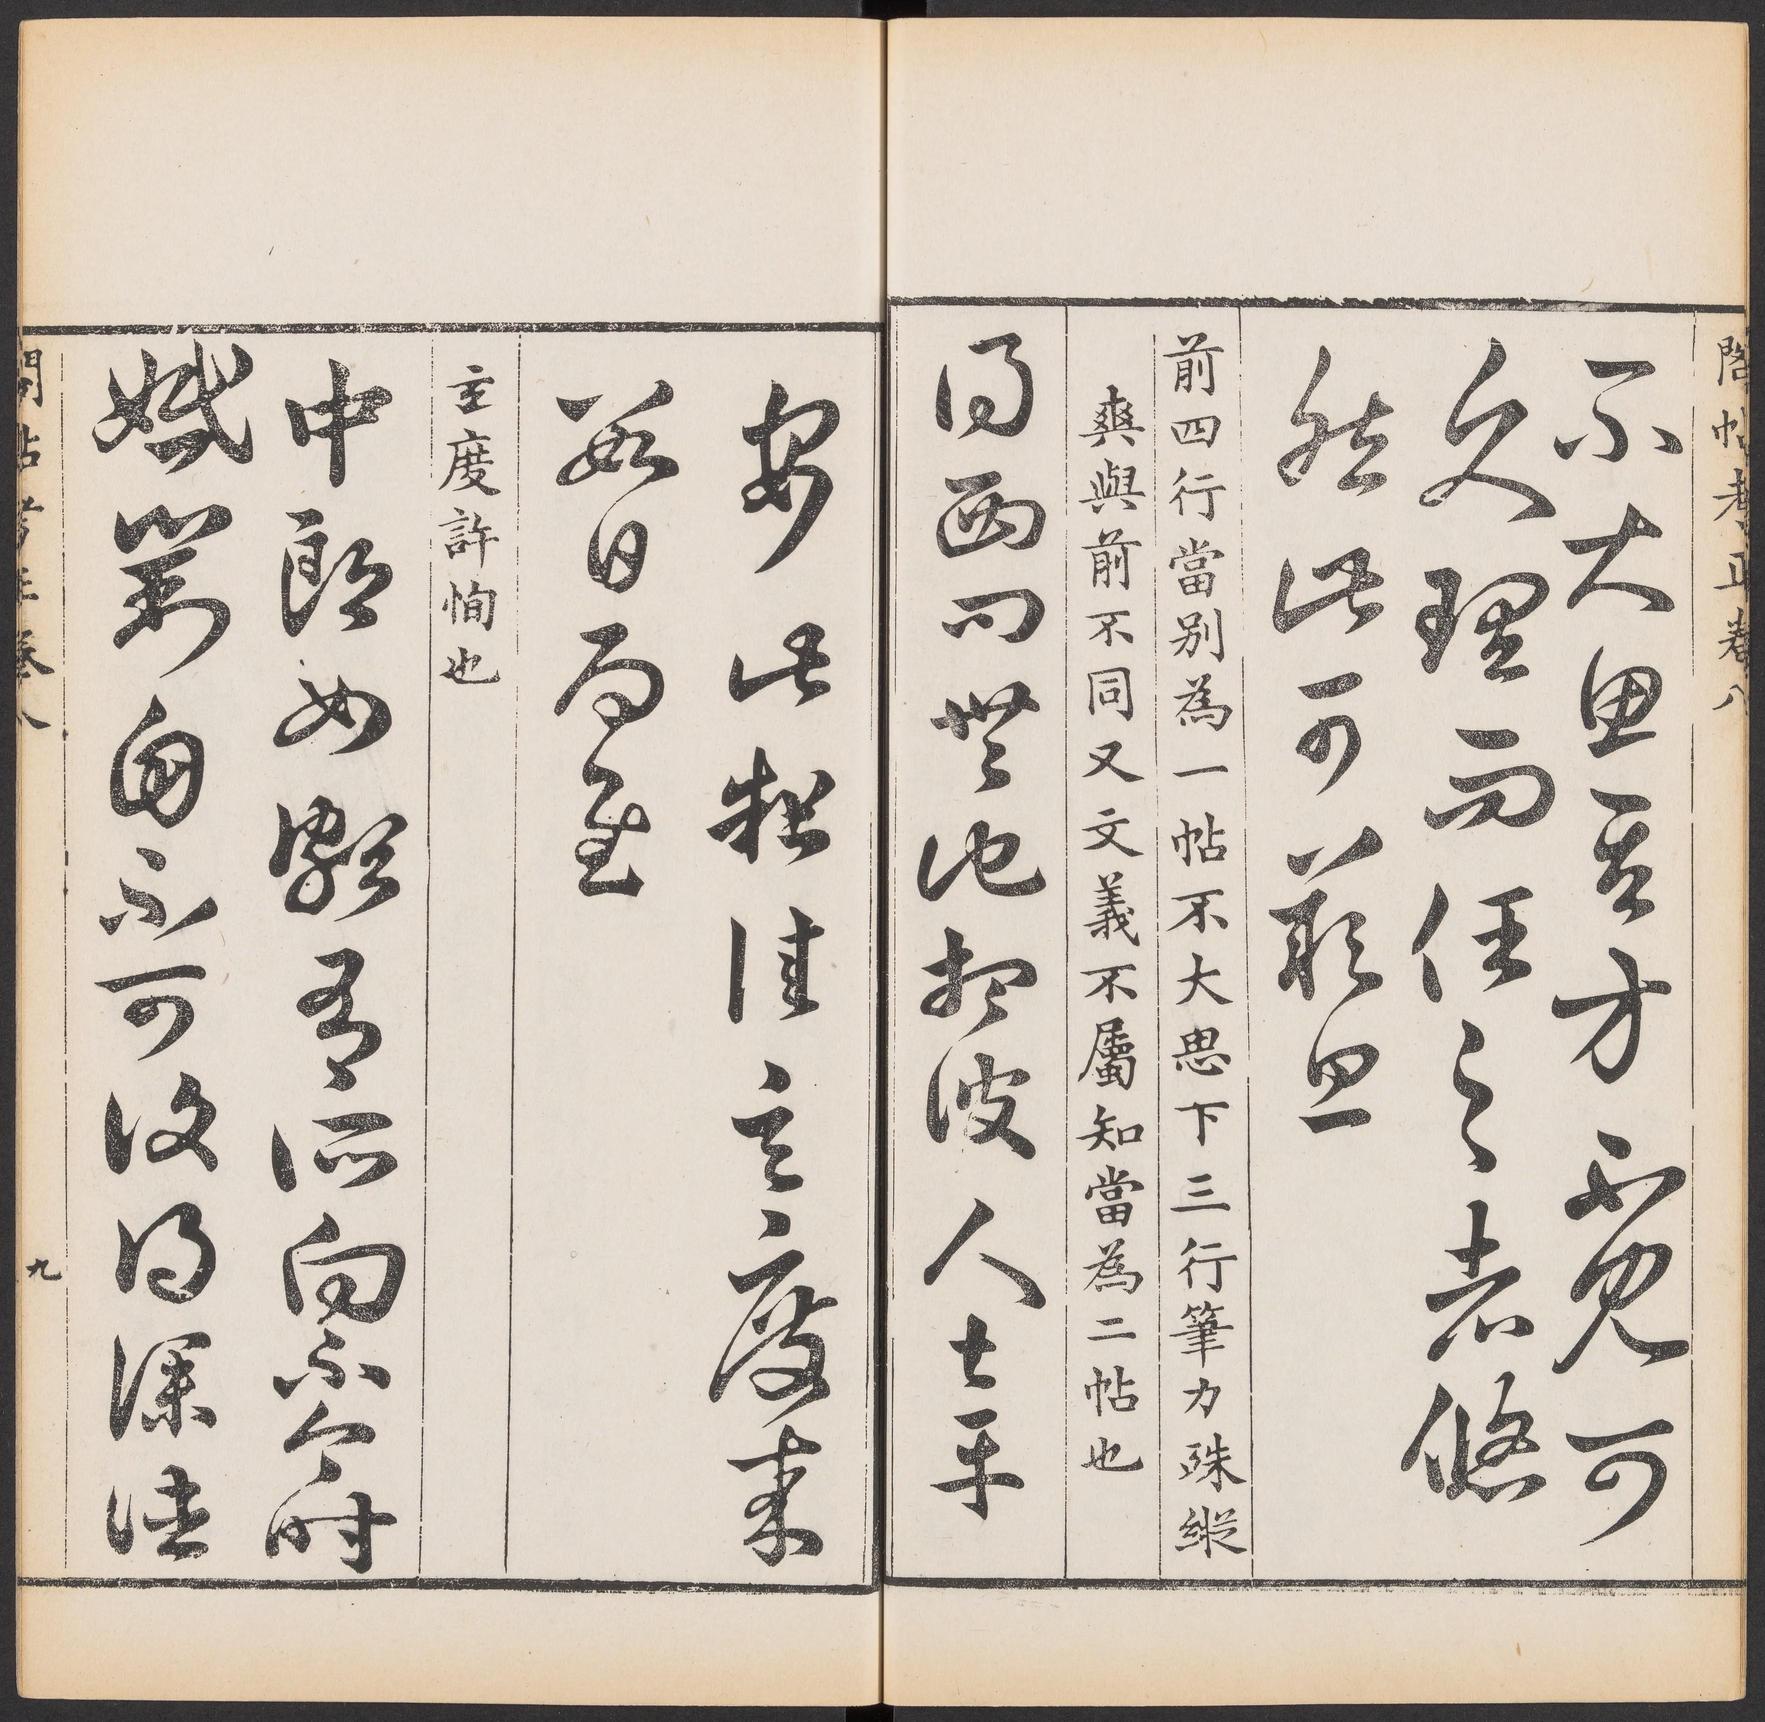 閣帖考正卷八
不大思吾方必見可
久理而任之者悠
然此可嘆息
前四行當別為一帖不大思下三行筆力殊縱
爽與前不同又文義不屬知當為二帖也
得西問無他想彼人士平
安此粗佳玄度來
數日有至
玄度許恂也
中郎女頗有所向不今時
婚對自不可復得僕往
閣帖考正卷八
九